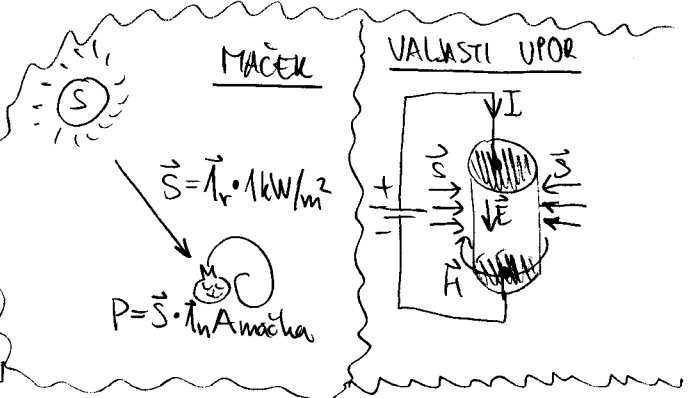 MAČEK
S
S⃗ = 1⃗ᵣ · 1kW/m²
P = S⃗ · 1⃗ₙ Amačka
VALJASTI UPOR
I
S⃗ S⃗
+
E⃗
-
H⃗